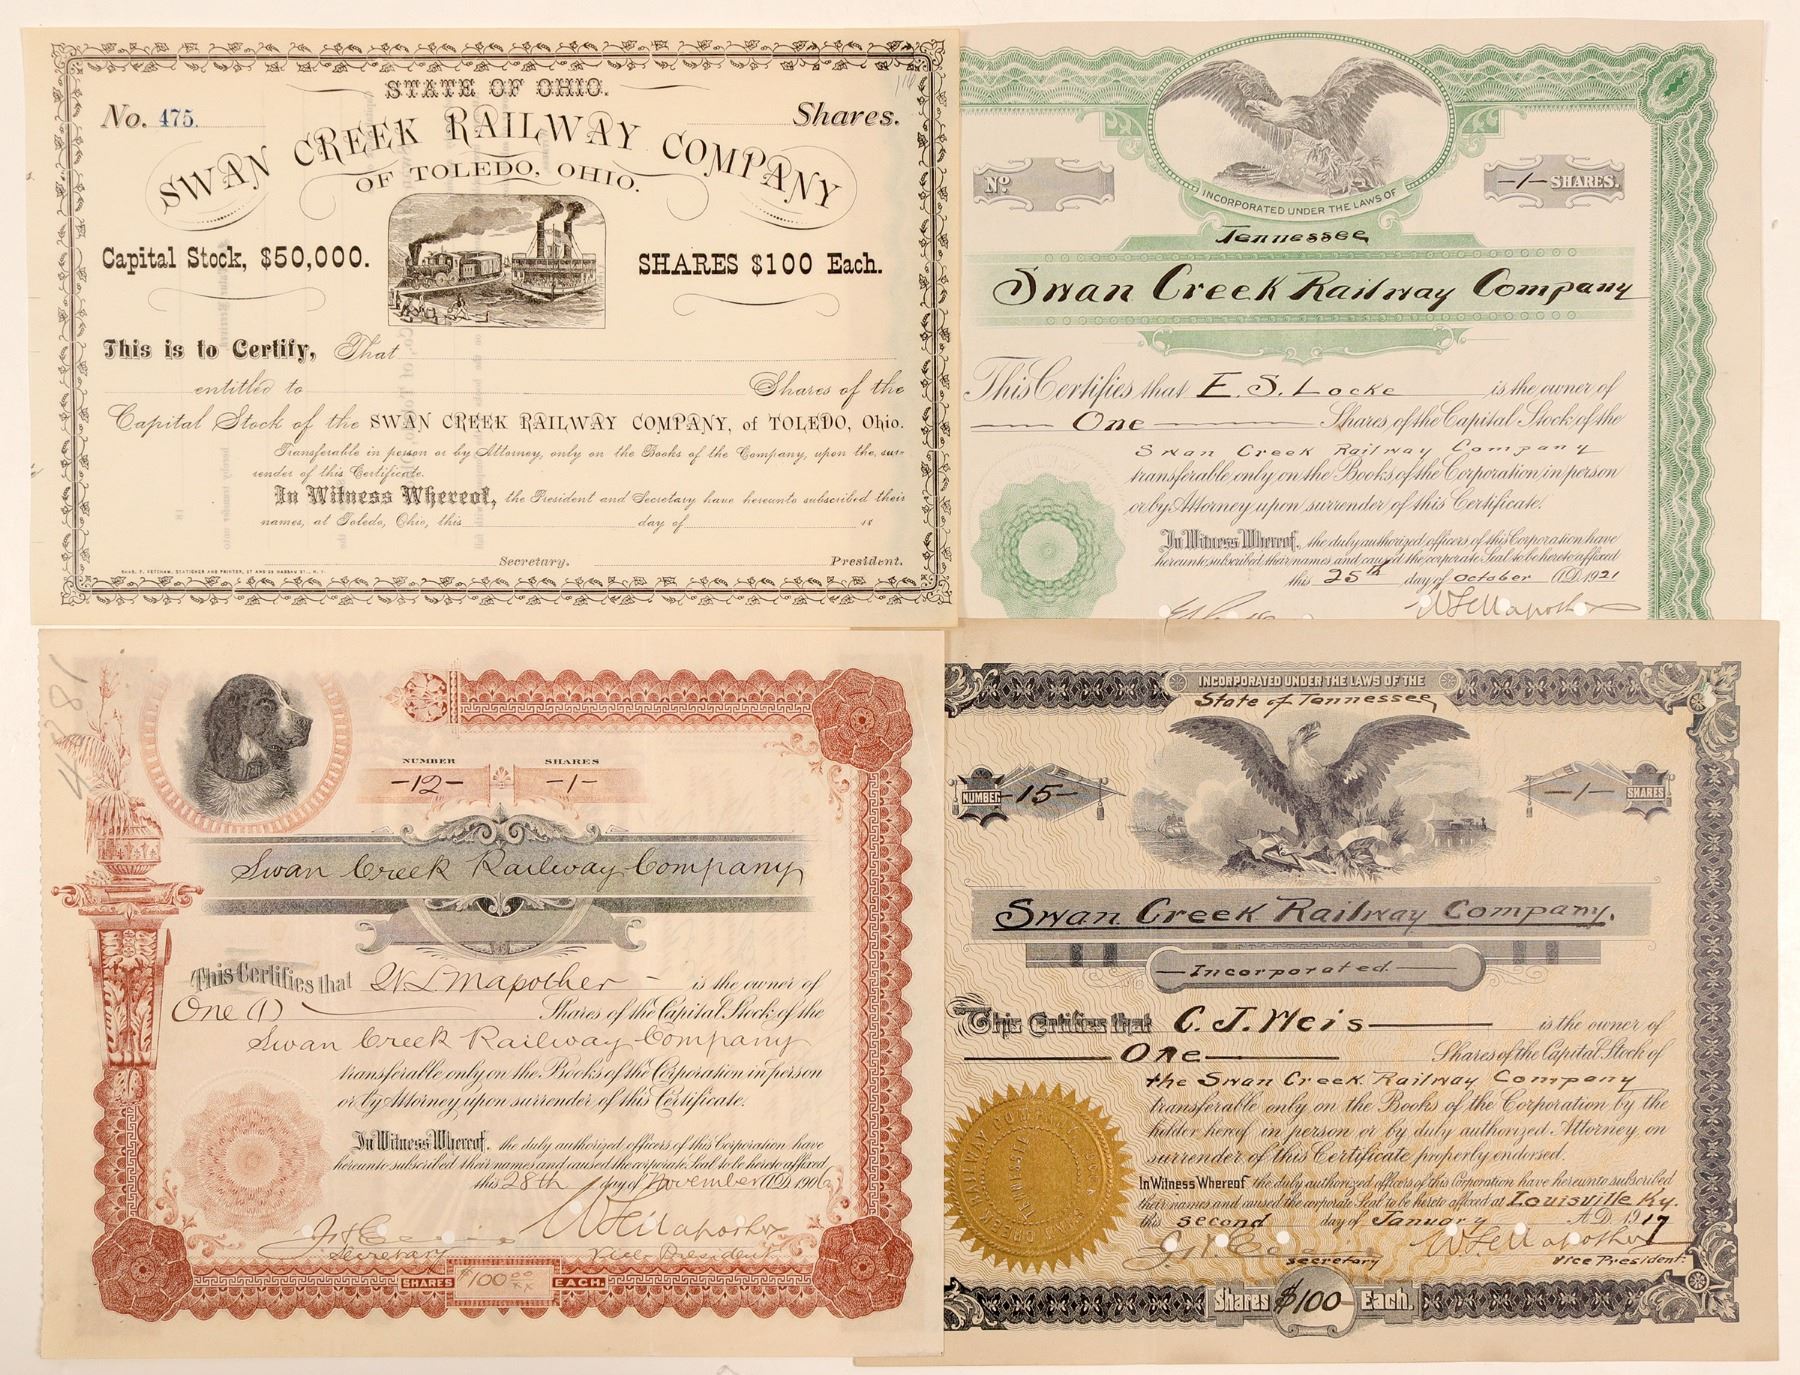 STATE OF OHIO.
No. 475.
Shares.
SWAN CREEK RAILWAY COMPANY
OF TOLEDO, OHIO.
Capital Stock, $50,000.
SHARES $100 Each.
This is to Certify, That
entitled to Shares of the
Capital Stock of the SWAN CREEK RAILWAY COMPANY, of TOLEDO, Ohio.
Transferable in person or by Attorney, only on the Books of the Company, upon the sur-
render of this Certificate.
In Witness Whereof, the President and Secretary have hereunto subscribed their
names, at Toledo, Ohio, this day of 18
Secretary. President.
CHAS. F. KETCHAM, STATIONER AND PRINTER, 27 AND 29 NASSAU ST., N. Y.
INCORPORATED UNDER THE LAWS OF
No
-1- SHARES.
Tennessee
Swan Creek Railway Company
This Certifies that E. S. Locke is the owner of
One Shares of the Capital Stock of the
Swan Creek Railway Company
transferable only on the Books of the Corporation in person
or by Attorney upon surrender of this Certificate.
In Witness Whereof, the duly authorized officers of this Corporation have
hereunto subscribed their names and caused the corporate Seal to be hereto affixed
this 25th day of October A.D. 1921
W L Mapother
4381
NUMBER SHARES
-12- -1-
Swan Creek Railway Company
This Certifies that W L Mapother - is the owner of
One (1) Shares of the Capital Stock of the
Swan Creek Railway Company
transferable only on the Books of the Corporation in person
or by Attorney upon surrender of this Certificate.
In Witness Whereof, the duly authorized officers of this Corporation have
hereunto subscribed their names and caused the corporate Seal to be hereto affixed
this 28th day of November A.D. 1906
W L Mapother
Secretary Vice President
SHARES $100 00/xx EACH.
INCORPORATED UNDER THE LAWS OF THE
State of Tennessee
NUMBER -15-
-1- SHARES
Swan Creek Railway Company.
Incorporated
This Certifies that C. J. Weis is the owner of
One Shares of the Capital Stock of
the Swan Creek Railway Company
transferable only on the Books of the Corporation by the
holder hereof in person or by duly authorized Attorney on
surrender of this Certificate properly endorsed.
In Witness Whereof the duly authorized officers of this Corporation have hereunto subscribed
their names and caused the corporate Seal to be hereto affixed at Louisville Ky.
this second day of January A.D. 1917
W L Mapother
secretary Vice President.
SWAN CREEK RAILWAY COMPANY
TENNESSEE
Shares $100 Each.